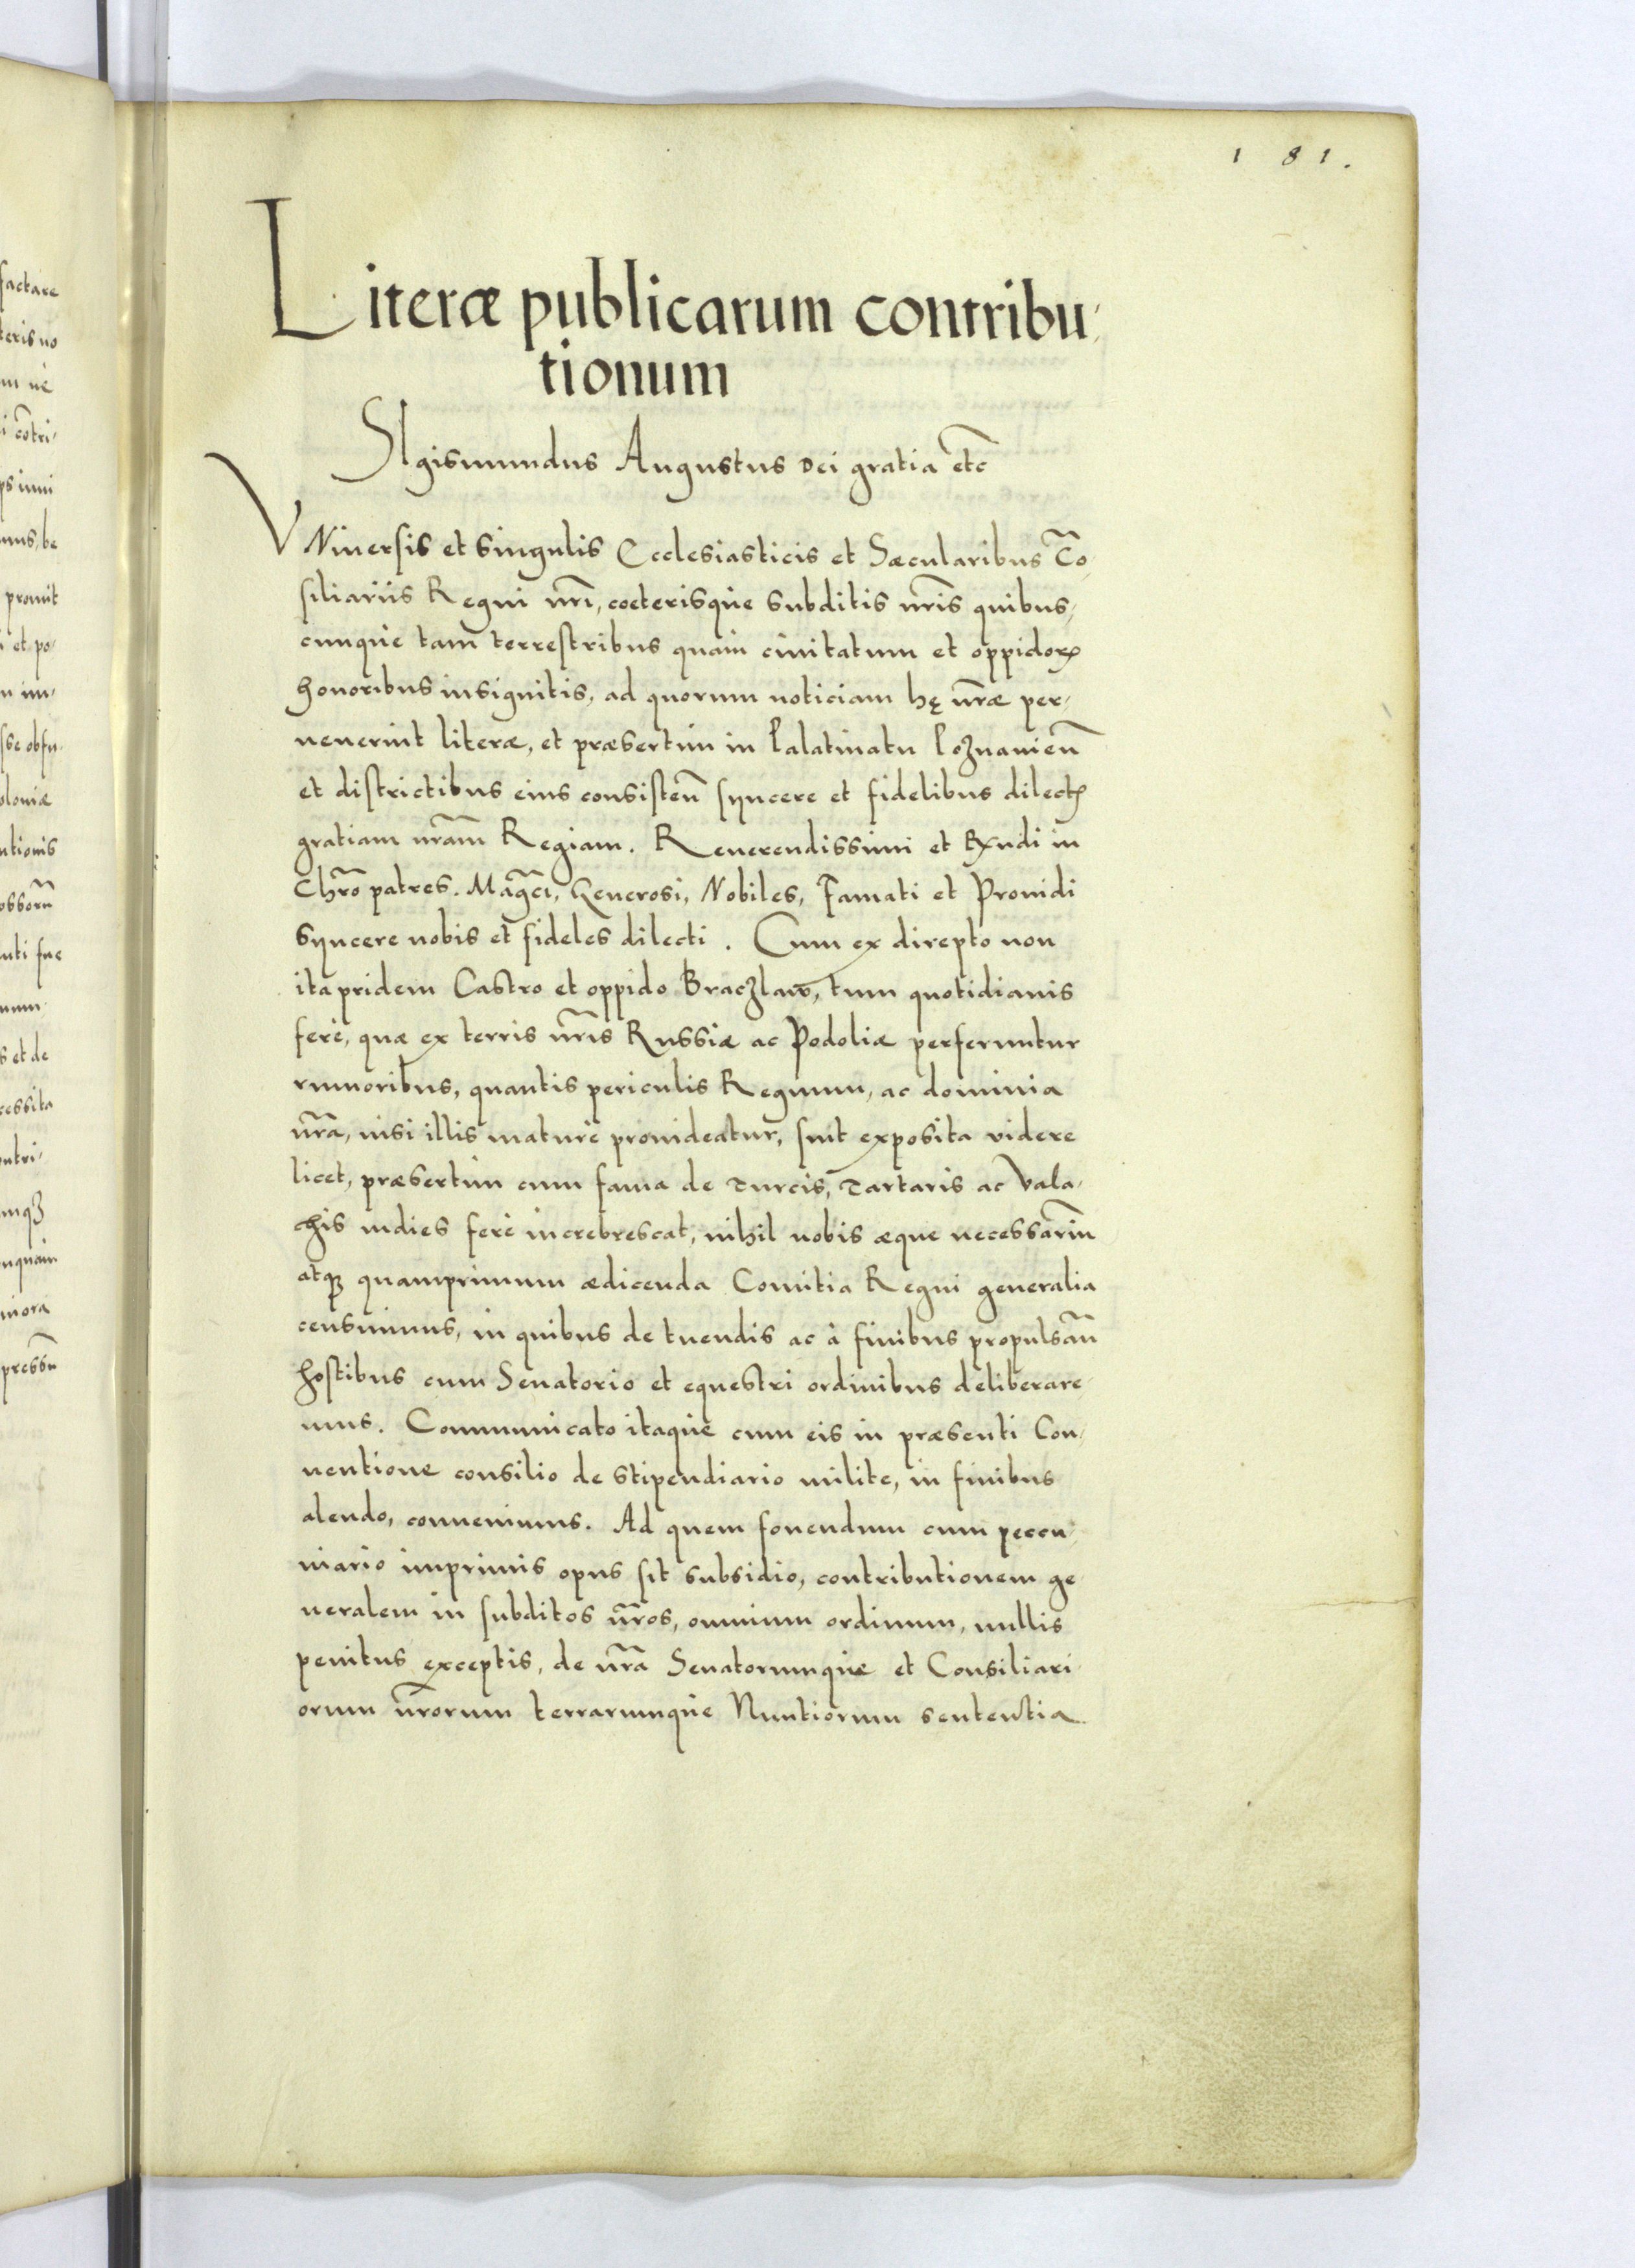 1 8 1.
Literæ publicarum contribu-
tionum
SIgismundus Augustus Dei gratia etc̄
VNiuersis et singulis Ecclesiasticis et Sæcularibus Cō-
siliariis Regni nr̄i, coeterisque subditis nr̄is quibus-
cunque tam terrestribus quam ciuitatum et oppidorꝝ
honoribus insignitis, ad quorum noticiam hę nr̄æ per-
uenerint literæ, et præsertim in Palatinatu Poznanień
et districtibus eius consisteń syncere et fidelibus dilectꝭ
gratiam nr̄am Regiam. Reuerendissimi et Rx̄ndi in
Chr̄o patres. Mag̃ci, Generosi, Nobiles, Famati et Prouidi
syncere nobis et fideles dilecti. Cum ex direpto non
ita pridem Castro et oppido Braczlaw, tum quotidianis
ferè, quæ ex terris nr̄is Russiæ ac Podoliæ perferuntur
rumoribus, quantis periculis Regnum, ac dominia
nr̄a, nisi illis maturè prouideatur, sint exposita videre
licet, præsertim cum fama de Turcis, Tartaris ac Vala-
chis indies ferè increbrescat, nihil nobis æque necessariū
atqꝫ quamprimum ædicenda Comitia Regni generalia
censuimus, in quibus de tuendis ac à finibus propulsań
hostibus cum Senatorio et equestri ordinibus deliberare-
mus. Communicato itaque cum eis in præsenti Con-
uentione consilio de stipendiario milite, in finibus
alendo, conuenimus. Ad quem fouendum cum peccu-
niario imprimis opus sit subsidio, contributionem ge
neralem in subditos nr̄os, omnium ordinum, nullis
penitus exceptis, de nr̄a Senatorumque et Consiliari-
orum nr̄orum terrarumque Nuntiorum sententia